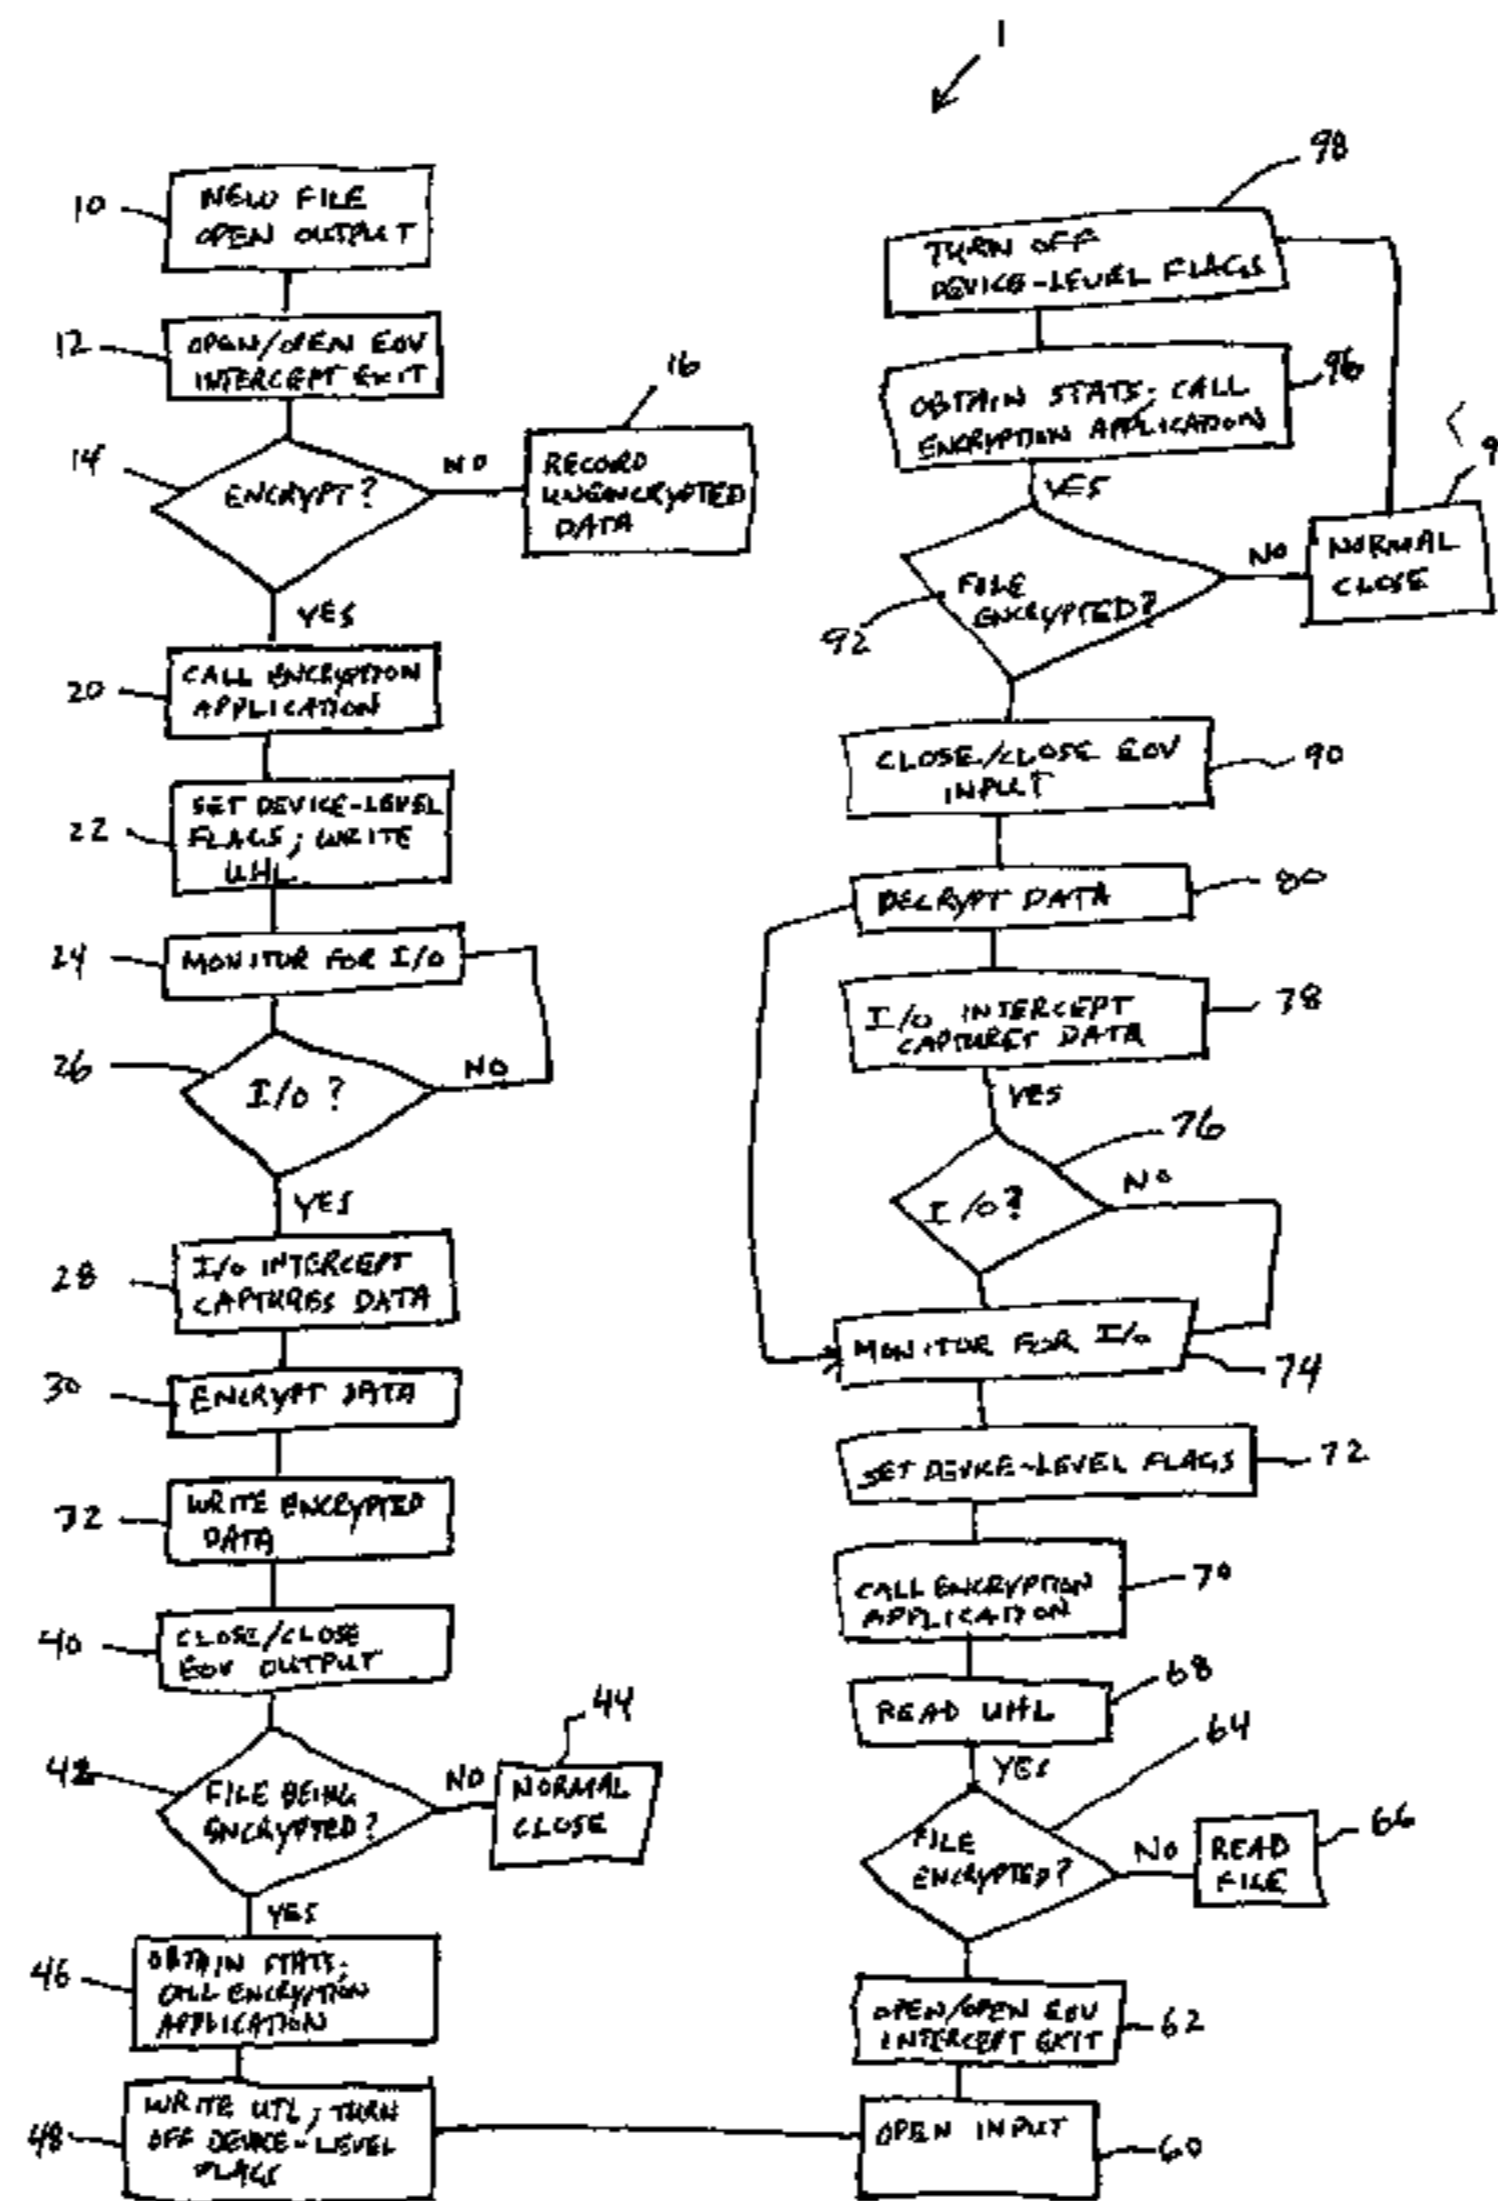 1
10
NEW FILE
OPEN OUTPUT
12
OPEN/OPEN EOV
INTERCEPT EXIT
14
ENCRYPT?
NO
16
RECORD
UNENCRYPTED
DATA
YES
20
CALL ENCRYPTION
APPLICATION
22
SET DEVICE-LEVEL
FLAGS; WRITE
UHL
24
MONITOR FOR I/O
26
I/O?
NO
YES
28
I/O INTERCEPT
CAPTURES DATA
30
ENCRYPT DATA
32
WRITE ENCRYPTED
DATA
40
CLOSE/CLOSE
EOV OUTPUT
42
FILE BEING
ENCRYPTED?
NO
44
NORMAL
CLOSE
YES
46
OBTAIN STATS;
CALL ENCRYPTION
APPLICATION
48
WRITE UTL; TURN
OFF DEVICE-LEVEL
FLAGS
98
TURN OFF
DEVICE-LEVEL FLAGS
96
OBTAIN STATS; CALL
ENCRYPTION APPLICATION
YES
9
92
FILE
ENCRYPTED?
NO
NORMAL
CLOSE
CLOSE/CLOSE EOV
INPUT
90
DECRYPT DATA
80
I/O INTERCEPT
CAPTURES DATA
78
YES
76
I/O?
NO
MONITOR FOR I/O
74
SET DEVICE-LEVEL FLAGS
72
CALL ENCRYPTION
APPLICATION
70
READ UHL
68
YES
64
FILE
ENCRYPTED?
NO
READ
FILE
66
OPEN/OPEN EOV
INTERCEPT EXIT
62
OPEN INPUT
60